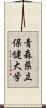 青森県立保健大学